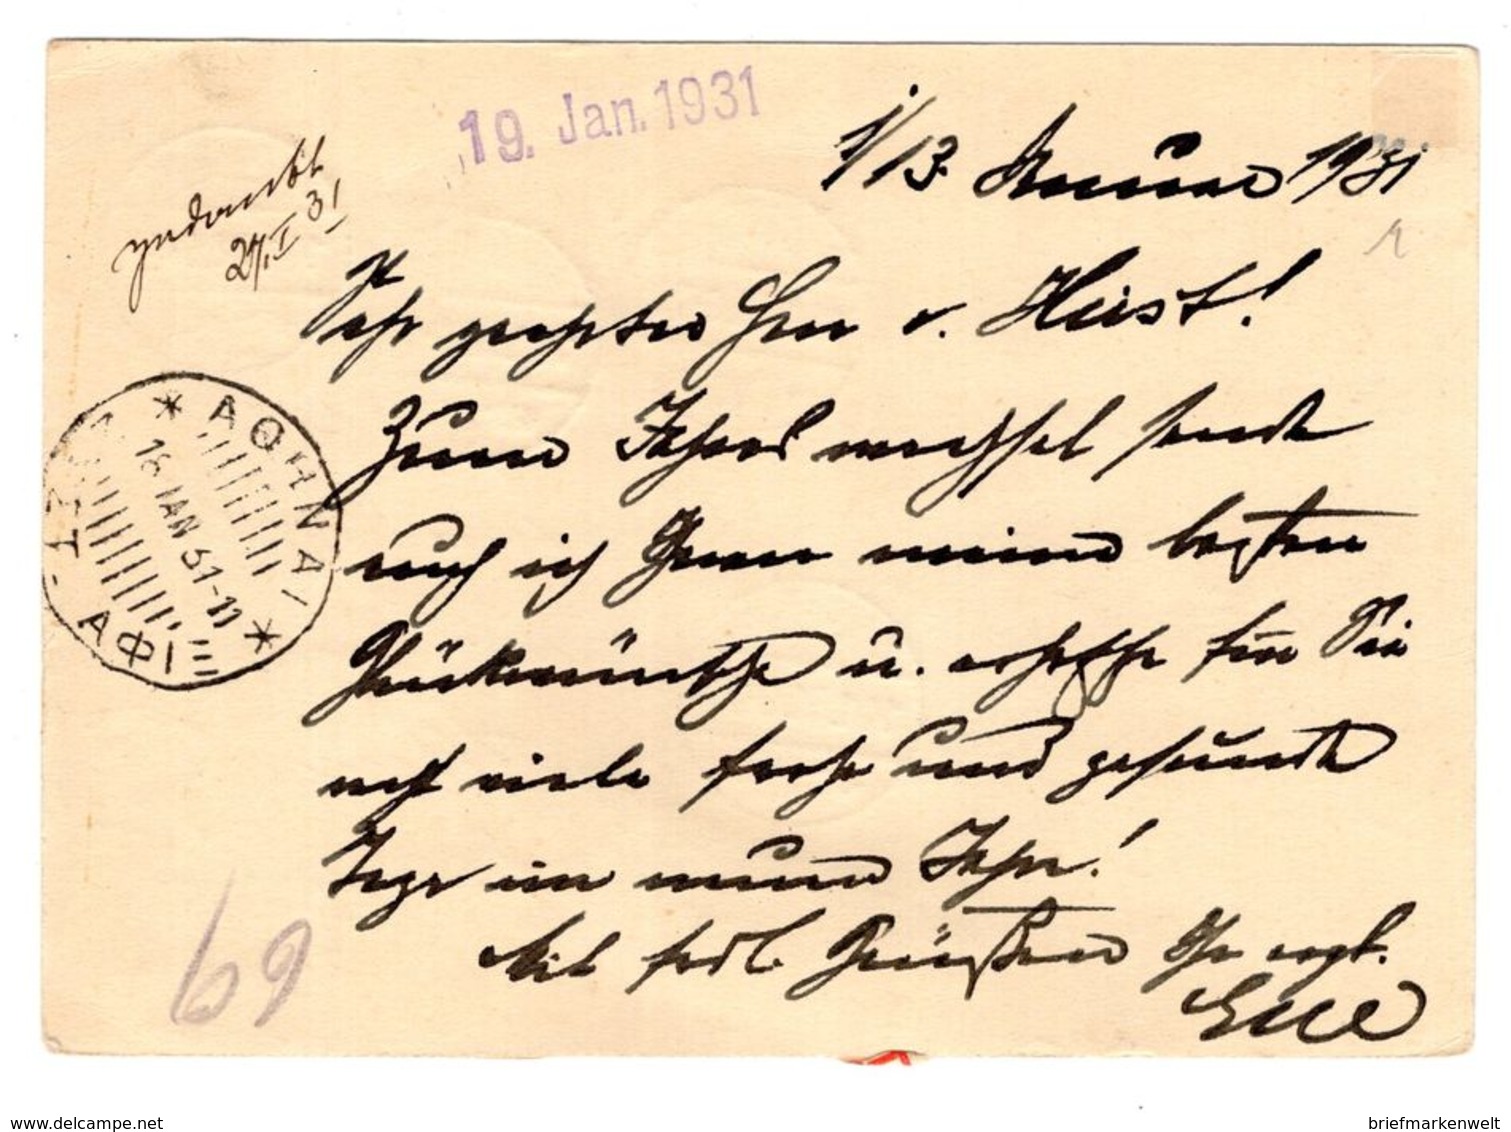 19. Jan. 1931
1/13. Januar 1931
gedankt
27.I 31
Sehr geehrter Herr v. Heist!
Zum Jahreswechsel sende
auch ich Ihnen meine besten
Glückwünsche u. erhoffe für Sie
recht viele frohe und gesunde
Tage im neuen Jahr!
Mit frdl. Grüßen Ihr ergb.
* ΑΘΗΝΑΙ *
16 ΙΑΝ 31-11
ΑΦΙΞ
69
delcampe.net
briefmarkenwelt